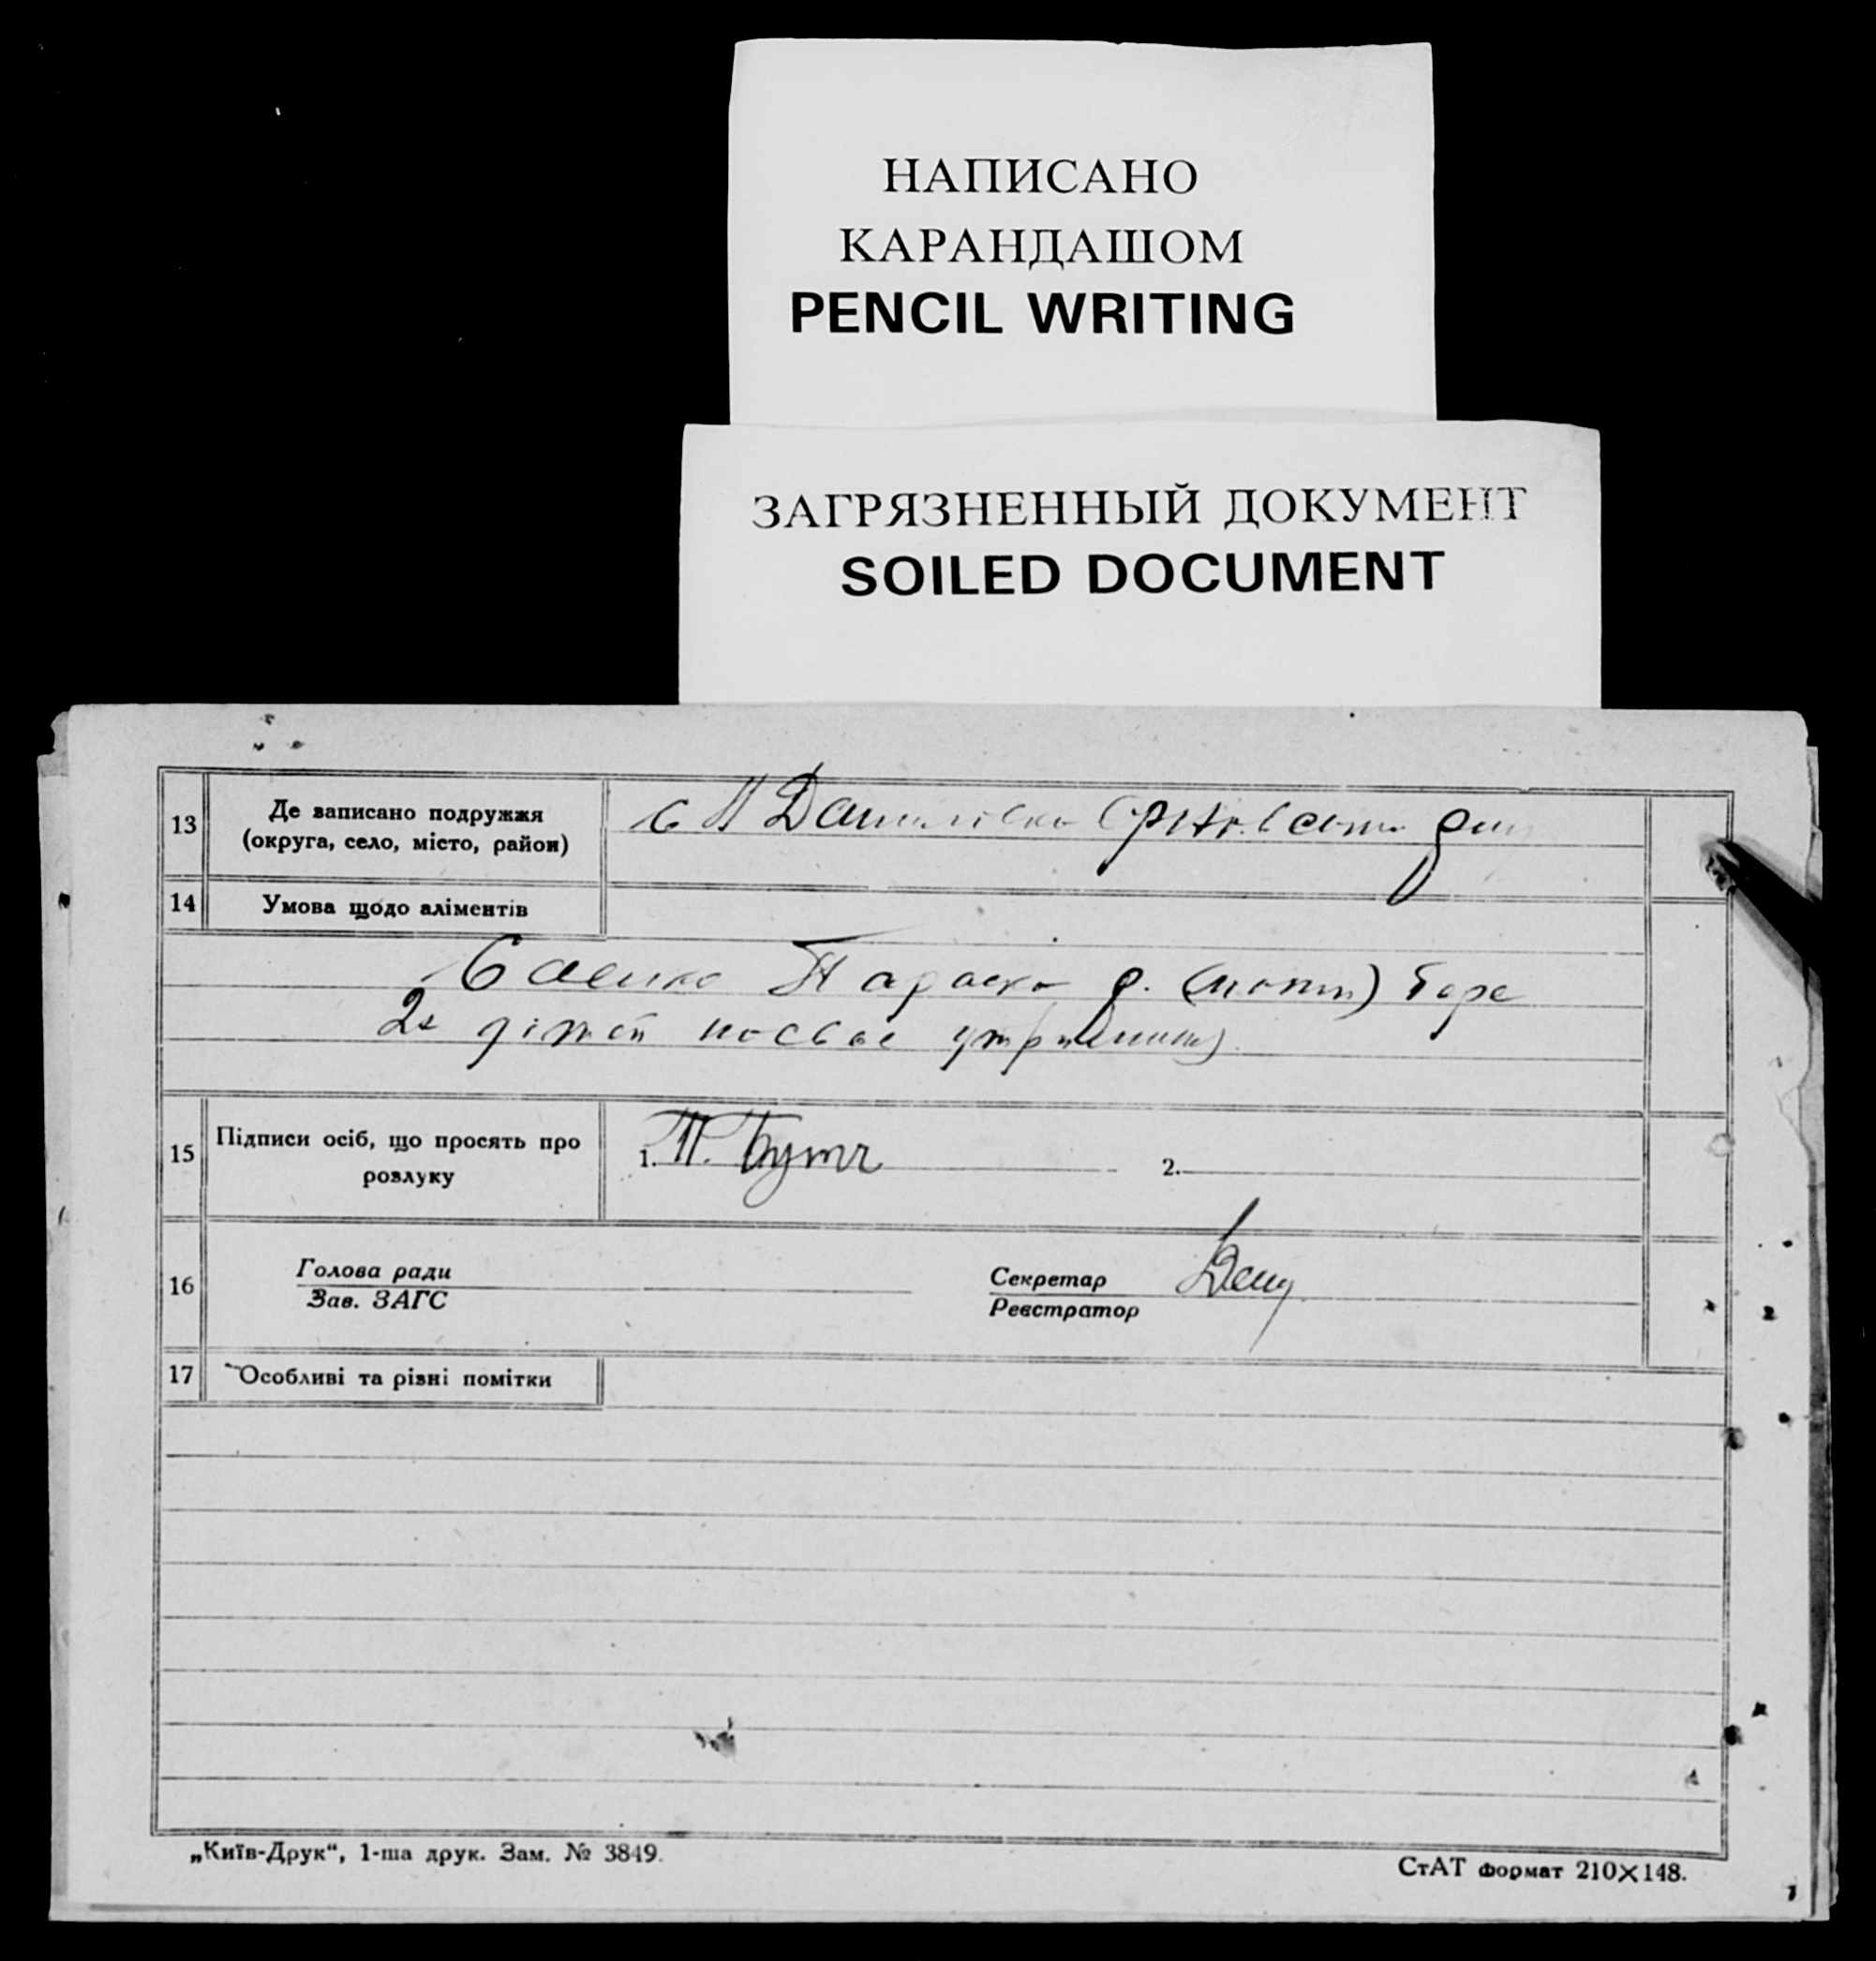 НАПИСАНО
КАРАНДАШОМ
PENCIL WRITING
ЗАГРЯЗНЕННЫЙ ДОКУМЕНТ
SOILED DOCUMENT
13
Де записано подружжя
(округа, село, місто, район)
14
Умова щодо аліментів
Параска (мати) бере
2х дітей утримання
15
Підписи осіб, що просять про
розлуку
1. П. Бутч
2.
16
Голова ради
Зав. ЗАГС
Секретар
Реєстратор
17
Особливі та різні помітки
„Київ-Друк“, 1-ша друк. Зам. № 3849.
СтАТ формат 210×148.